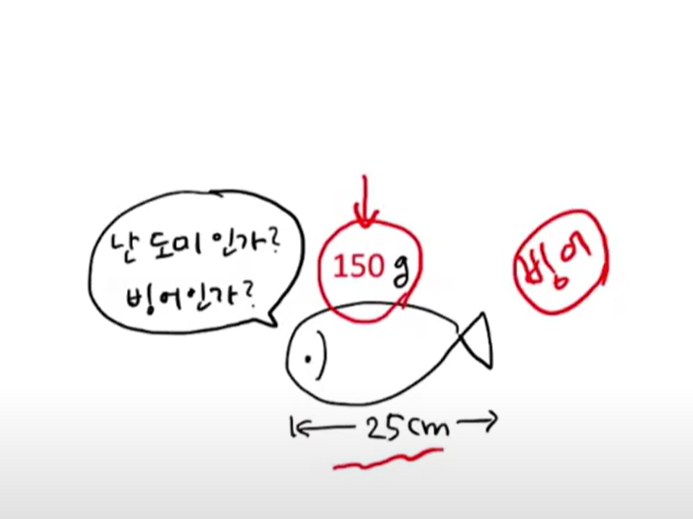 난 도미인가?
빙어인가?
150 g
빙어
25cm